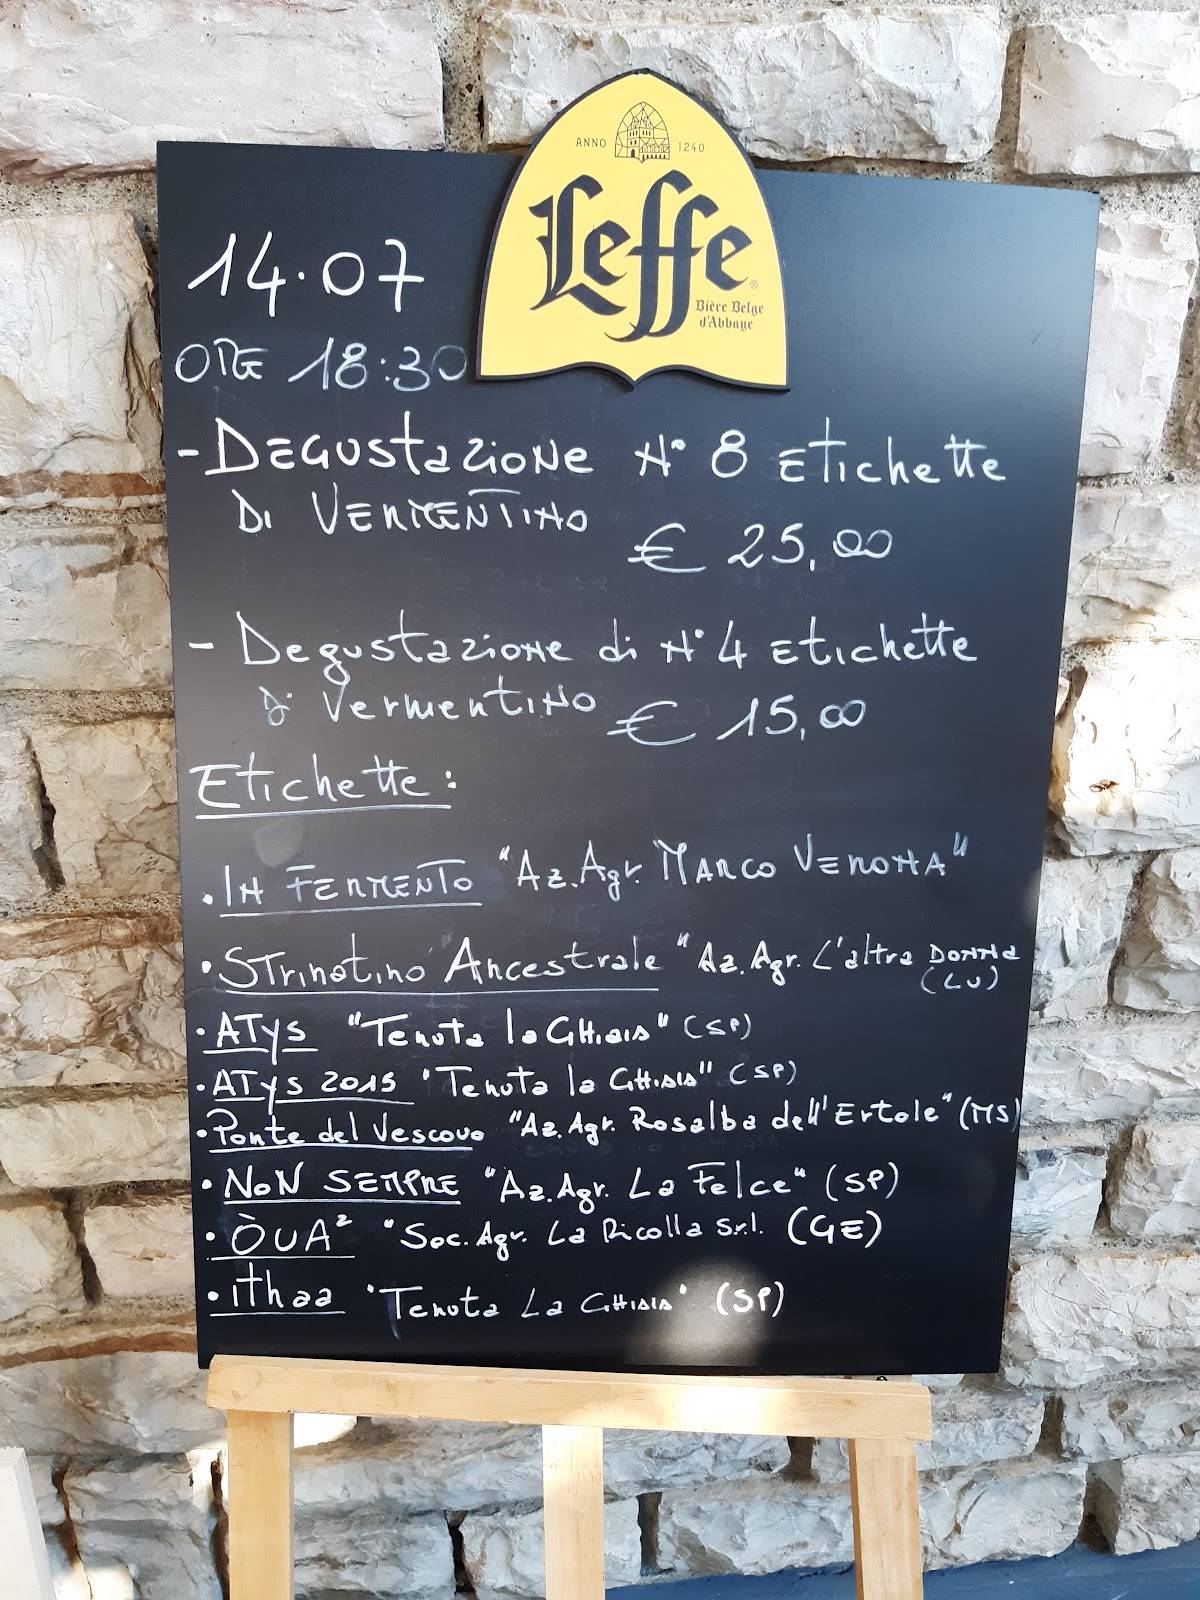 ANNO 1240
Leffe
Bière Belge
d'Abbaye
14.07
ORE 18:30
- DEGUSTAZIONE N° 8 ETICHETTE
DI VERMENTINO
€ 25,00
- Degustazione di N° 4 ETICHETTE
di VermentiNO
€ 15,00
Etichette:
• IN FERMENTO "Az. Agr. MARCO VERONA"
• STrinatino Ancestrale "Az. Agr. L'altra DONNA
(LU)
• ATys "Tenuta la GHiaia" (SP)
• ATys 2015 "Tenuta la GHiaia" (SP)
• Ponte del Vescovo "Az. Agr. Rosalba dell'Ertole" (MS)
• NON SEMPRE "Az. Agr. La Felce" (SP)
• ÒUA² "Soc. Agr. La Ricolla S.r.l. (GE)
• iTHaa "Tenuta La GHiaia" (SP)